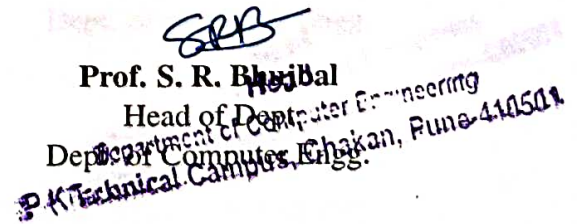 SRB
Prof. S. R. Bhujbal
Head of Dept.
Dept. of Computer Engg.
Head
Department of Computer Engineering
P K Technical Campus, Chakan, Pune-410501